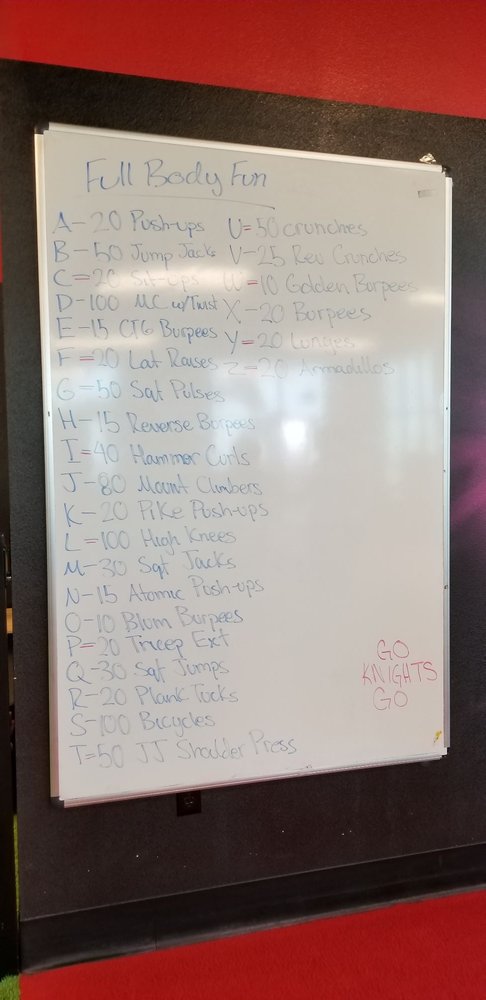 Full Body Fun
A-20 Push-ups
B-50 Jump Jacks
C=20 Sit-ups
D-100 MC w/Twist
E-15 CTG Burpees
F=20 Lat Raises
G-50 Sqt Pulses
H-15 Reverse Burpees
I=40 Hammer Curls
J-80 Mount Climbers
K-20 Pike Push-ups
L=100 High Knees
M-30 Sqt Jacks
N-15 Atomic Push-ups
O-10 Blum Burpees
P=20 Tricep Ext
Q-30 Sqt Jumps
R-20 Plank Tucks
S-100 Bicycles
T=50 JJ Shoulder Press
U=50 crunches
V-25 Rev Crunches
W=10 Golden Burpees
X-20 Burpees
Y=20 Lunges
Z=20 Armadillos
GO
KNIGHTS
GO